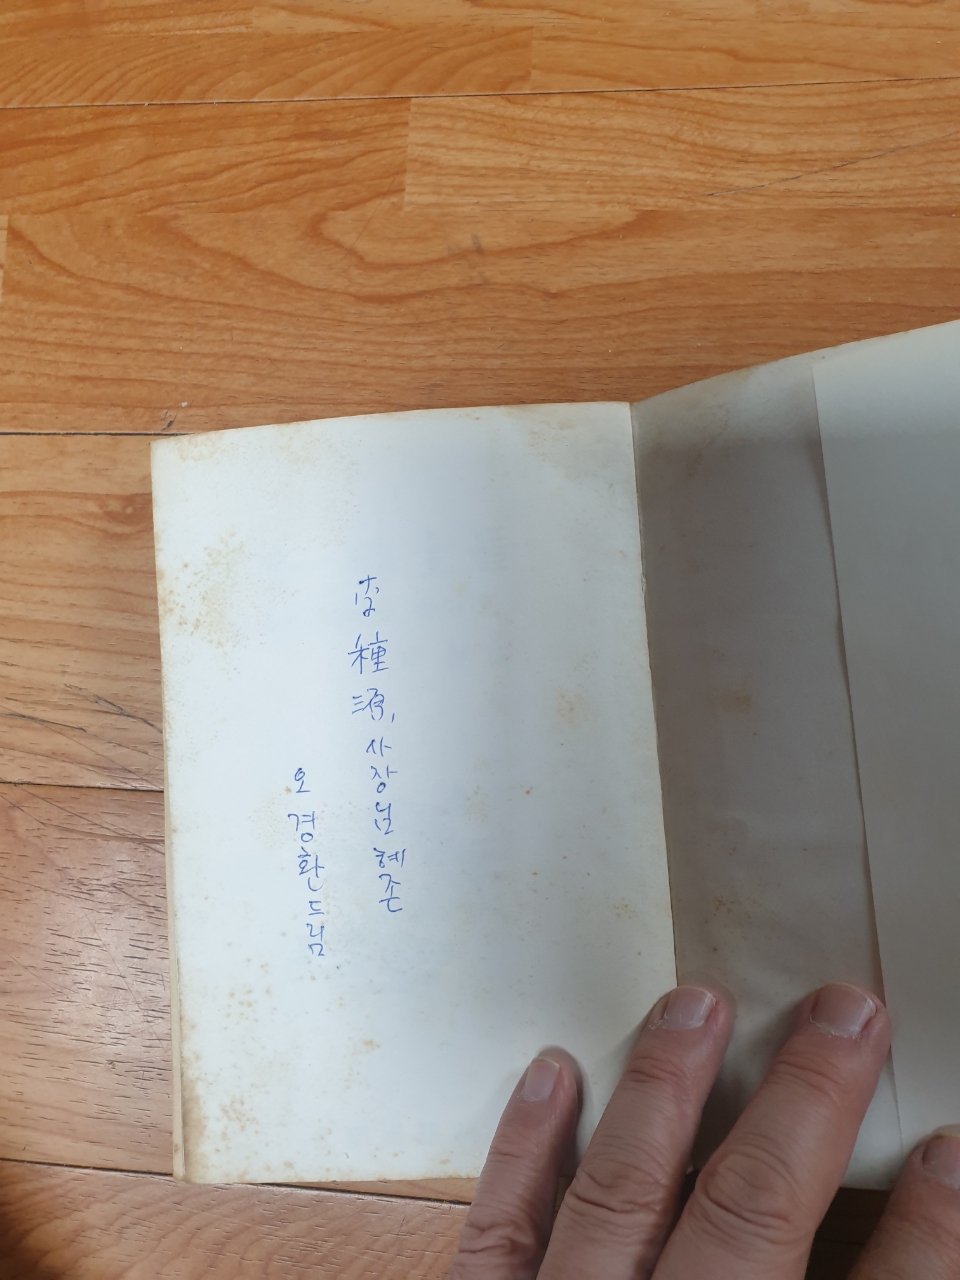 李種源, 사장님 혜존
오경환 드림